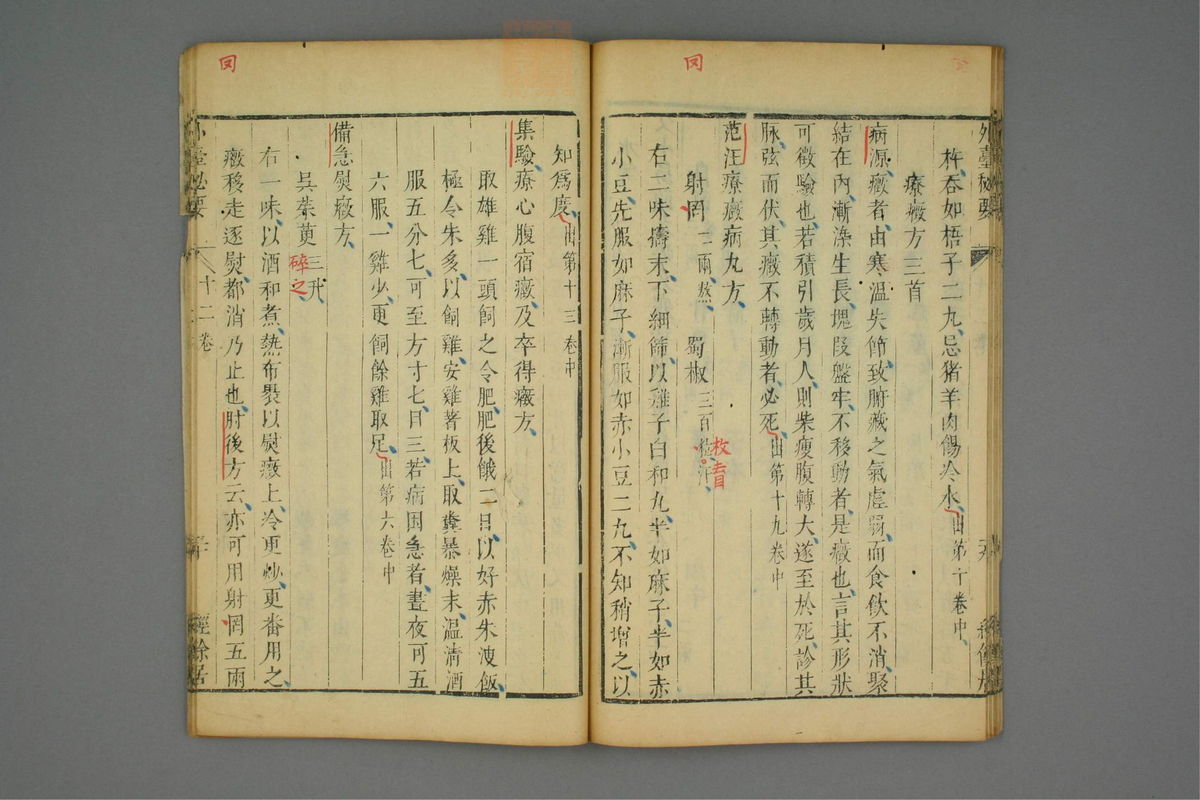 外臺秘要
杵吞如梧子二丸忌猪羊肉餳冷水出第十卷中
療癥方三首
病源癥者由寒溫失節致腑藏之氣虛弱而食飲不消聚
結在內漸染生長塊段盤牢不移動者是癥也言其形狀
可徵驗也若積引歲月人則柴瘦腹轉大遂至於死診其
脉弦而伏其癥不轉動者必死出第十九卷中
范汪療癥病丸方
射罔二兩熬 蜀椒三百粒汗
枚音
右二味擣末下細篩以雞子白和丸半如麻子半如赤
小豆先服如麻子漸服如赤小豆二丸不知稍增之以
知爲度出第十三卷中
集驗療心腹宿癥及卒得癥方
取雄雞一頭飼之令肥肥後餓二日以好赤朱溲飯
極令朱多以飼雞安雞著板上取糞暴燥末溫清酒
服五分匕可至方寸匕日三若病困急者晝夜可五
六服一雞少更飼餘雞取足出第六卷中
備急熨癥方
吳茱萸三升
碎之
右一味以酒和煮熱布裹以熨癥上冷更炒更番用之
癥移走逐熨都消乃止也肘後方云亦可用射罔五兩
小臺秘要
十二卷
經餘居